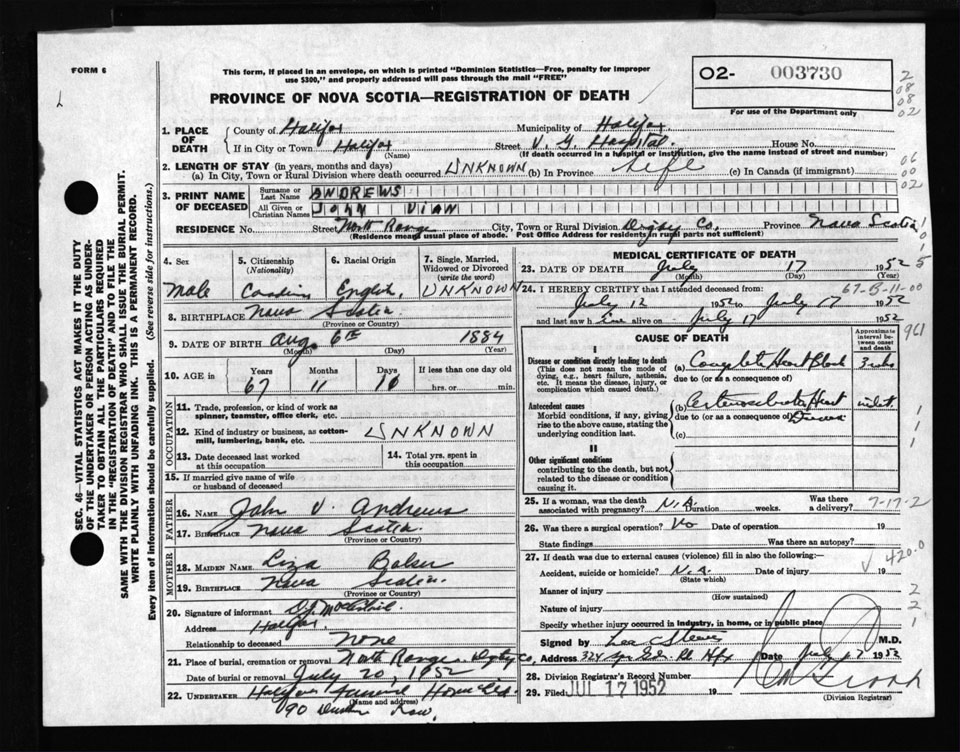 FORM 6
This form, if placed in an envelope, on which is printed "Dominion Statistics—Free, penalty for improper
use $300," and properly addressed will pass through the mail "FREE"
PROVINCE OF NOVA SCOTIA—REGISTRATION OF DEATH
O2- 003730
For use of the Department only
2
08
08
02
06
00
02
SEC. 46—VITAL STATISTICS ACT MAKES IT THE DUTY
OF THE UNDERTAKER OR PERSON ACTING AS UNDER-
TAKER TO OBTAIN ALL THE PARTICULARS REQUIRED
IN THE "REGISTRATION OF DEATH" AND TO FILE THE
SAME WITH THE DIVISION REGISTRAR WHO SHALL ISSUE THE BURIAL PERMIT.
WRITE PLAINLY WITH UNFADING INK. THIS IS A PERMANENT RECORD.
Every item of information should be carefully supplied. (See reverse side for instructions.)
1. PLACE OF DEATH
County of Halifax Municipality of Halifax
If in City or Town Halifax (Name) Street V. G. Hospital. House No.
(If death occurred in a hospital or institution, give the name instead of street and number)
2. LENGTH OF STAY (in years, months and days)
(a) In City, Town or Rural Division where death occurred UNKNOWN (b) In Province Life (c) In Canada (if immigrant)
3. PRINT NAME OF DECEASED
Surname or Last Name ANDREWS
All Given or Christian Names JOHN VIAN
RESIDENCE No. Street North Range City, Town or Rural Division Digby Co, Province Nova Scotia
(Residence means usual place of abode. Post Office Address for residents in rural parts not sufficient)
4. Sex Male
5. Citizenship (Nationality)
6. Racial Origin English.
7. Single, Married, Widowed or Divorced (write the word) UNKNOWN
8. BIRTHPLACE Nova Scotia (Province or Country)
9. DATE OF BIRTH Aug 6th 1884
(Month) (Day) (Year)
10. AGE in Years 67 Months 11 Days If less than one day old hrs. or min.
OCCUPATION
11. Trade, profession, or kind of work as spinner, teamster, office clerk, etc.
12. Kind of industry or business, as cotton-mill, lumbering, bank, etc. UNKNOWN
13. Date deceased last worked at this occupation
14. Total yrs. spent in this occupation
15. If married give name of wife or husband of deceased
FATHER
16. NAME John V. Andrews
17. BIRTHPLACE Nova Scotia
(Province or Country)
MOTHER
18. MAIDEN NAME Liza
19. BIRTHPLACE Nova Scotia.
(Province or Country)
20. Signature of informant
Address Halifax,
Relationship to deceased None
21. Place of burial, cremation or removal North Range Digby Co,
Date of burial or removal July 20, 1952
22. UNDERTAKER Halifax Funeral Home
(Name and address)
90
MEDICAL CERTIFICATE OF DEATH
23. DATE OF DEATH July 17 1952
(Month) (Day)
5
24. I HEREBY CERTIFY that I attended deceased from: 67-B-11-00
July 12 1952 to July 17 1952
and last saw h alive on July 17 1952
CAUSE OF DEATH
Approximate interval between onset and death
961
I
Disease or condition directly leading to death
(This does not mean the mode of dying, e.g., heart failure, asthenia, etc. It means the disease, injury, or complication which caused death.)
(a) Complete Heart Block 3 wks
due to (or as a consequence of)
Antecedent causes
Morbid conditions, if any, giving rise to the above cause, stating the underlying condition last.
(b) Arteriosclerotic Heart Disease
due to (or as a consequence of)
(c)
II
Other significant conditions
contributing to the death, but not related to the disease or condition causing it.
25. If a woman, was the death associated with pregnancy? N.A. Duration weeks. Was there a delivery? 7-17-2
26. Was there a surgical operation? No Date of operation 19
State findings Was there an autopsy?
27. If death was due to external causes (violence) fill in also the following:
Accident, suicide or homicide? N.A. Date of injury 19
(State which)
420.0
Manner of injury
(How sustained)
Nature of injury
Specify whether injury occurred in industry, in home, or in public place
Signed by M.D.
Address 324 Date July 17 1952
28. Division Registrar's Record Number
29. Filed JUL 17 1952
(Division Registrar)